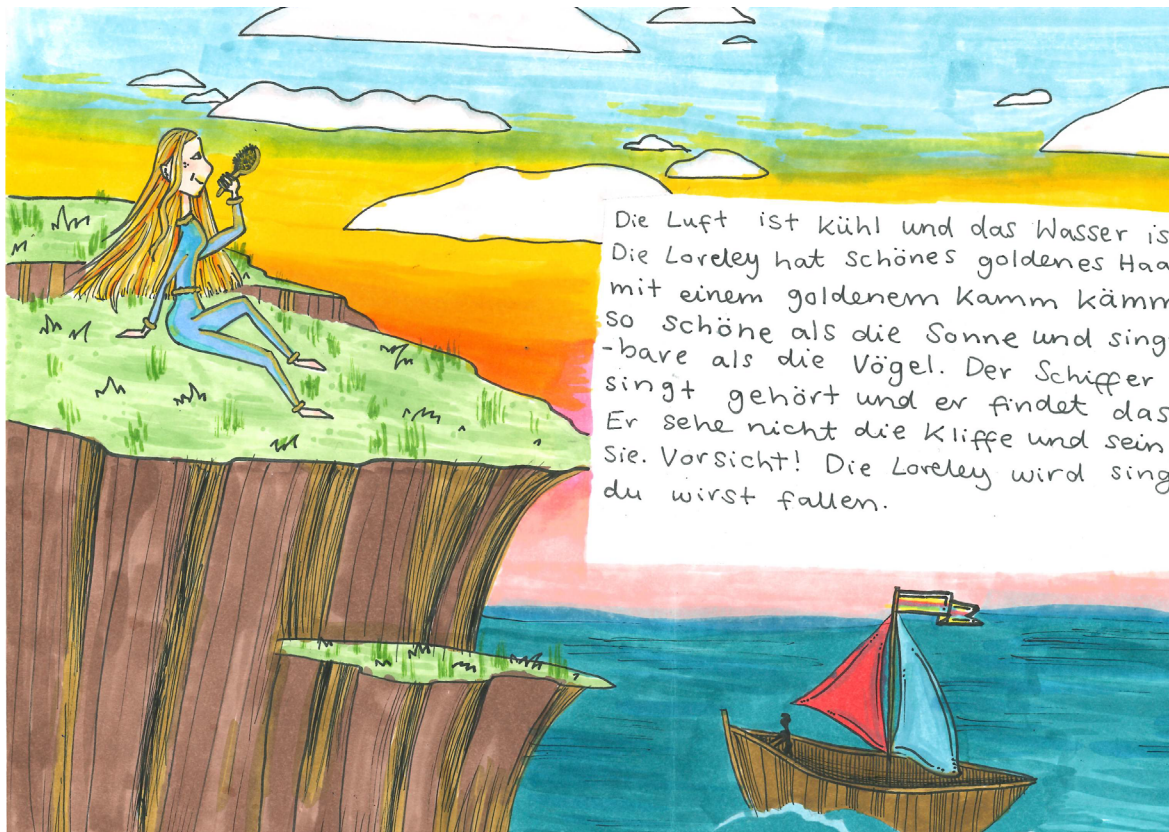 Die Luft ist kühl und das Wasser is
Die Loreley hat schönes goldenes Haa
mit einem goldenem Kamm kämm
so schöne als die Sonne und sing
-bare als die Vögel. Der Schiffer
singt gehört und er findet das
Er sehe nicht die Kliffe und sein
Sie. Vorsicht! Die Loreley wird sing
du wirst fallen.